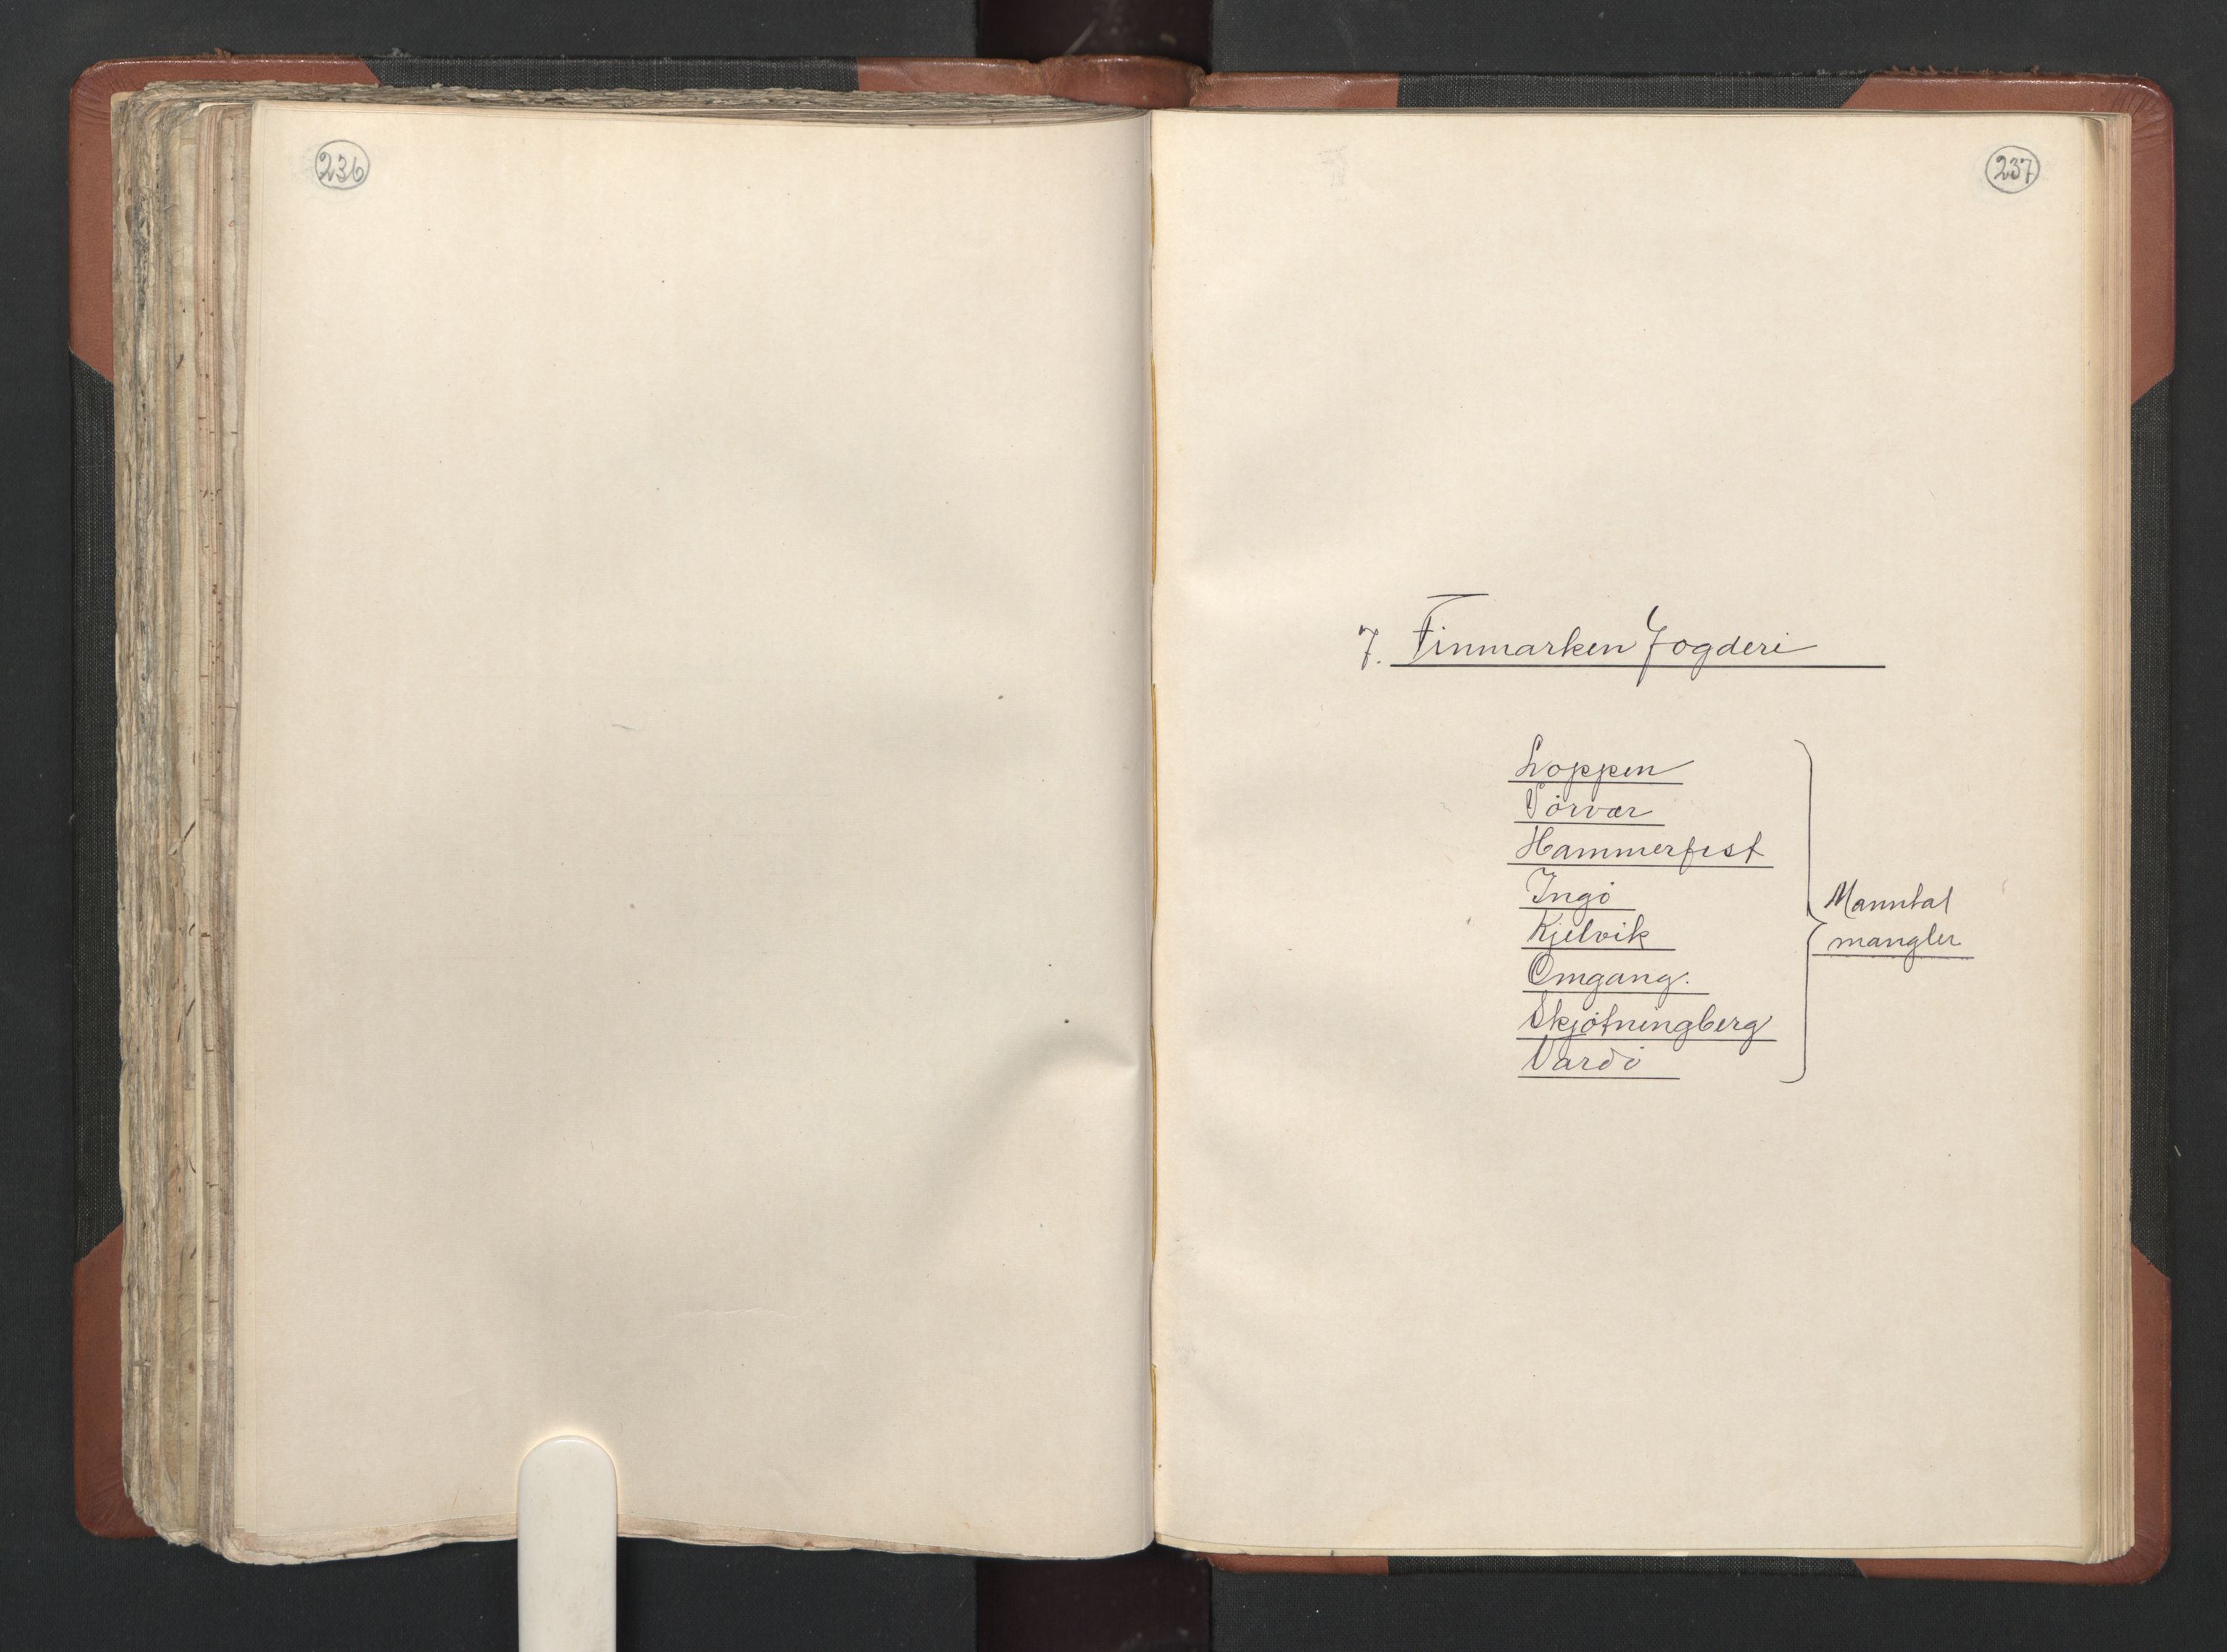 236
237
7. Finmarken Fogderi
Loppen
Sörvær
Hammerfest
Ingö
Kjelvik
Omgang.
Skjötningberg
Vardö
Manntal
mangler